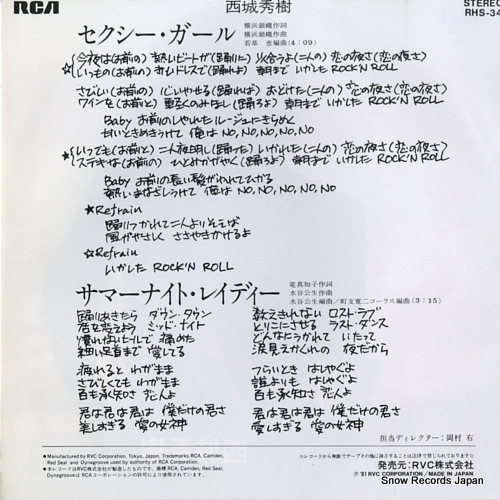 RCA
西城秀樹
STEREO
RHS-34
セクシー・ガール
横浜銀蝿作詞
横浜銀蝿作曲
若草 恵編曲(4:09)
☆今夜は(お前の) 熱いビートが(踊りた) り合うよ(二人の) 恋の夜さ(恋の夜さ)
いつもの(お前の) 赤いドレスで(踊れよ) 朝まで いかした ROCK'N ROLL
さびしい(お前の) 心いやせる(踊れば) おどけた(二人の) 恋の夜さ(恋の夜さ)
ワインを(お前と) 飲みほし(踊ろよ) 朝まで いかした ROCK'N ROLL
Baby お前のしやれたルージュにきらめく
甘いときめきうけて 俺は NO, NO, NO, NO, NO
いつでも(お前と) 二人夜明し(踊った) いかれた(二人の) 恋の夜さ(恋の夜さ)
ステキな(お前の) ひとみかがやく(踊ろよ) 朝まで いかした ROCK'N ROLL
Baby お前の長い髪がゆれてひかる
熱いまなざしうけて 俺は NO, NO, NO, NO, NO
★Refrain
踊りつかれて二人よりそえば
風がやさしく ささやきかけるよ
☆Refrain
いかした ROCK'N ROLL
サマーナイト・レイディー
竜真知子作詞
水谷公生作曲
水谷公生編曲/町支寛二コーラス編曲(3:15)
踊りあきたら ダウン・タウン
君を変えよう ミッド・ナイト
慣れないヒールで 痛めた
細い足首まで 愛してる
疲れると わがまま
さびしくても わがまま
百も承知さ 恋人よ
君は君は君は 僕だけの君さ
美しすぎる 愛の女神
教えきれない ロスト・ラブ
とりこにさせる ラスト・ダンス
どんなにうかれて いたって
涙見えかくれの 夜だから
つらいとき はしゃぐよ
誰よりも はしゃぐよ
百も承知さ 恋人よ
君は君は君は 僕だけの君さ
愛しすぎる 愛の女神
担当ディレクター:岡村 右
●Manufactured by RVC Corporation, Tokyo, Japan. Trademarks RCA, Camden,
Red Seal and Dynagroove used by authority of RCA Corporation.
●本レコードはRVC株式会社が製造したものです。商標 RCA, Camden, Red Seal,
DynagrooveはRCAコーポレーションの許可により使用しています。
☆レコードから無断でテープその他に録音することは法律で禁じられております☆
発売元:RVC株式会社
Ⓟ'81 RVC CORPORATION/MADE IN JAPAN
Snow Records Japan